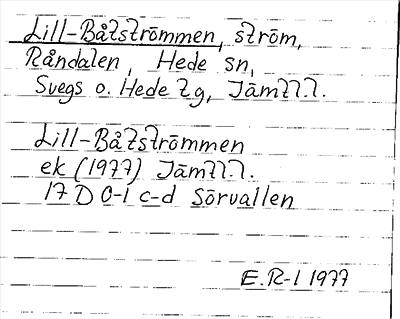 Lill-Båtströmmen, ström,
Råndalen, Hede sn,
Svegs o. Hede tg, Jämtl.
Lill-Båtströmmen
ek (1977) Jämtl.
17 D 0-1 c-d Sörvallen
E.R-l 1977